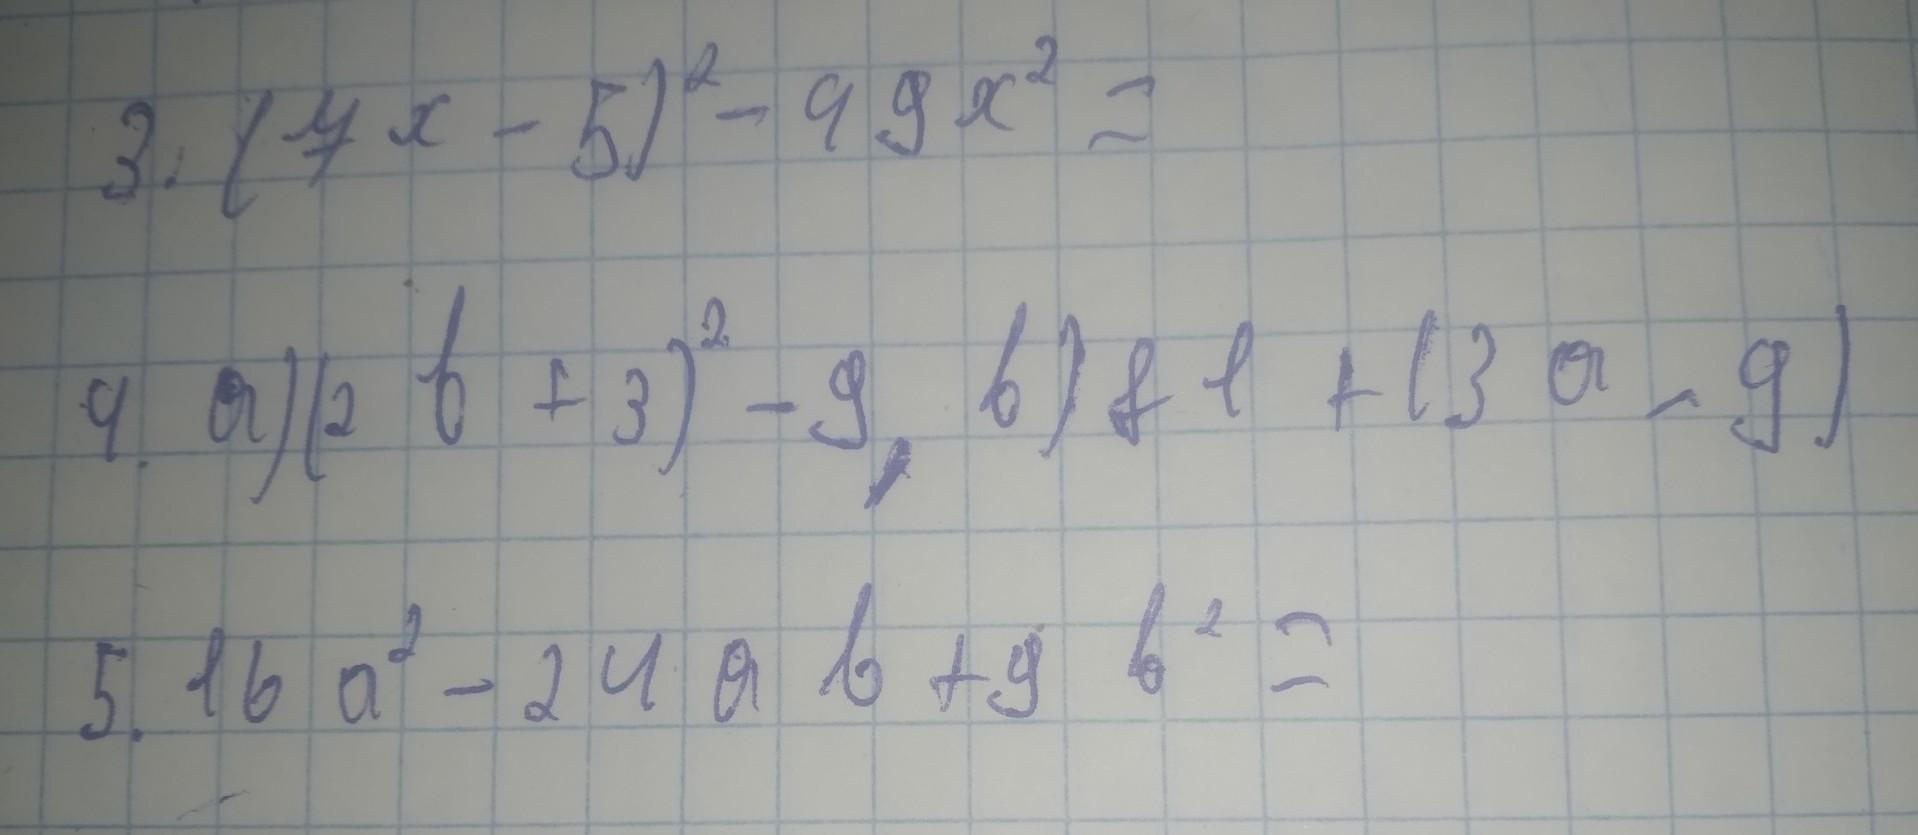 3. (7x - 5)² - 49x² =
4. a) (2b + 3)² - 9, b) 81 + (3a - 9)
5. 16a² - 24ab + 9b² =